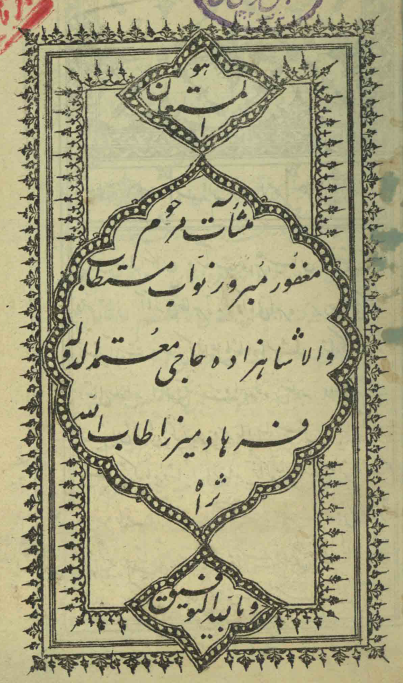 هو
المستعان
منشآت مرحوم
مغفور مبرور نوّاب مستطاب
والا شاهزاده حاجی معتمد الدوله
فرهاد میرزا طاب الله
ثراه
و بالله التوفیق